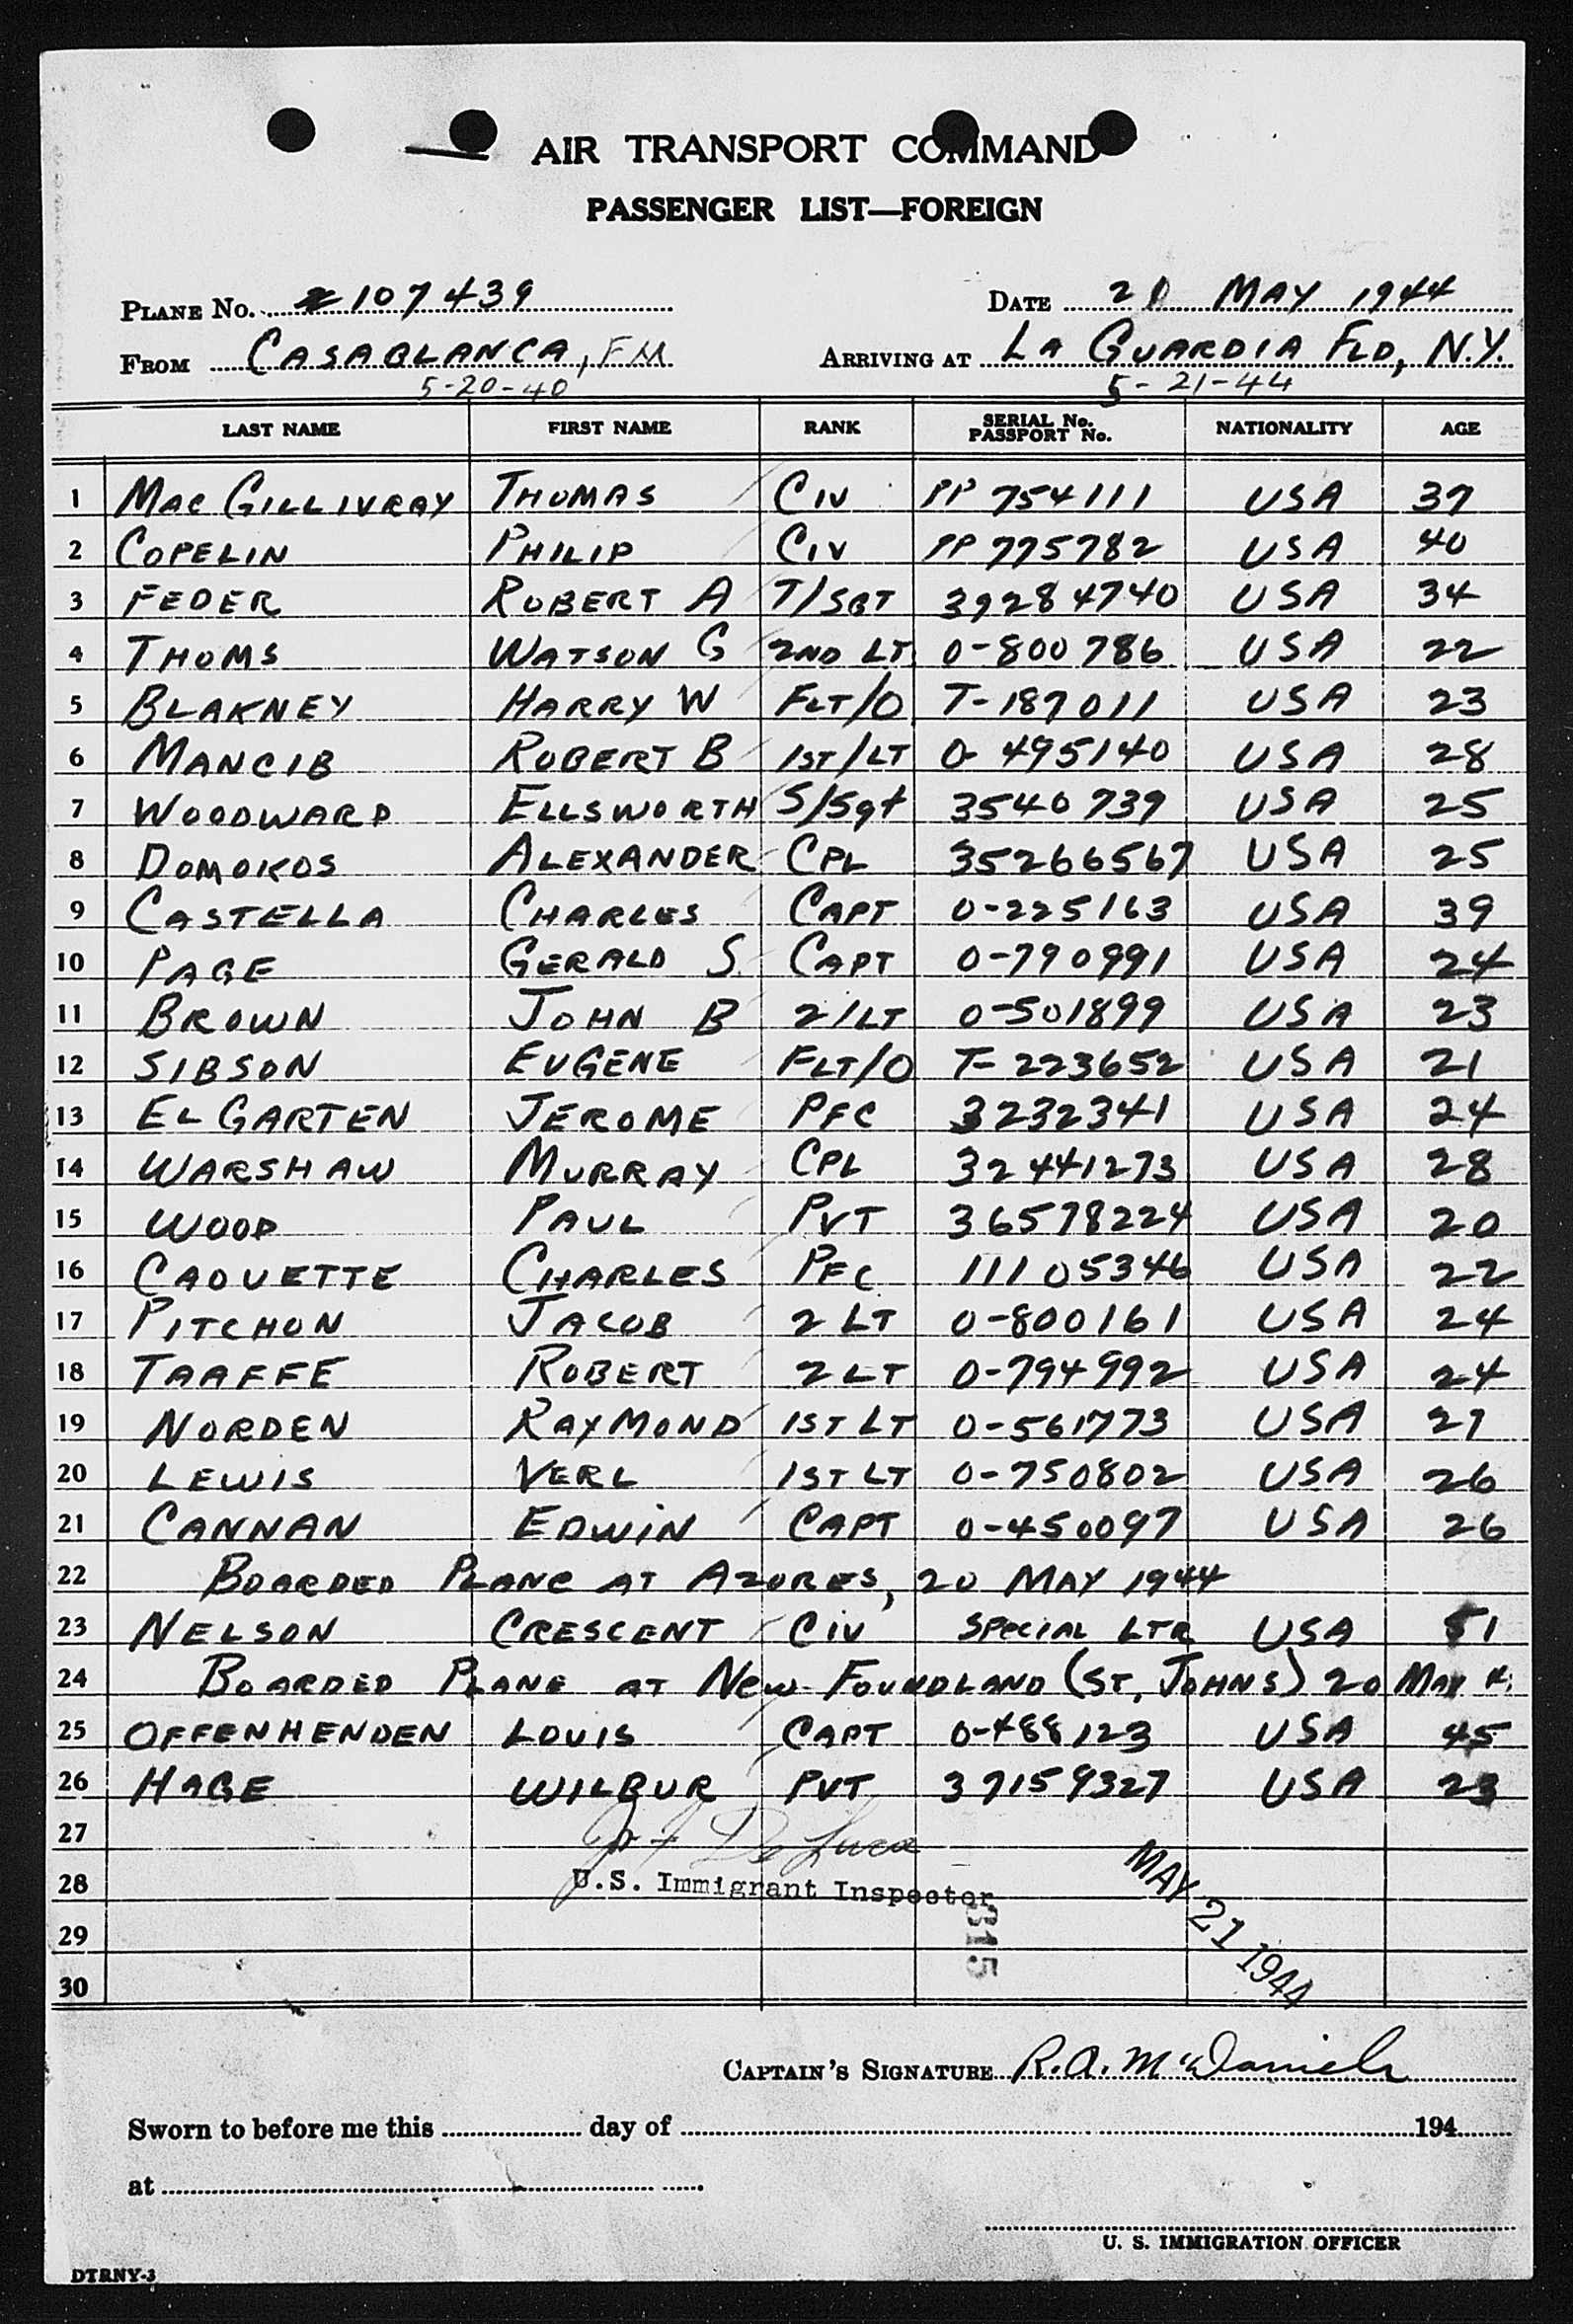 AIR TRANSPORT COMMAND
PASSENGER LIST—FOREIGN
PLANE No. 107439 DATE 21 MAY 1944
FROM CASABLANCA, FM ARRIVING AT LA GUARDIA FLD, N.Y.
5-20-40 5-21-44
LAST NAME FIRST NAME RANK SERIAL No. PASSPORT No. NATIONALITY AGE
1 MAC GILLIVRAY THOMAS CIV PP 754111 USA 37
2 COPELIN PHILIP CIV PP 775782 USA 40
3 FEDER ROBERT A T/SGT 39284740 USA 34
4 THOMS WATSON G 2ND LT 0-800786 USA 22
5 BLAKNEY HARRY W FLT/O T-187011 USA 23
6 MANCIB ROBERT B 1ST/LT 0-495140 USA 28
7 WOODWARD ELLSWORTH S/Sgt 3540739 USA 25
8 DOMOKOS ALEXANDER CPL 35266567 USA 25
9 CASTELLA CHARLES CAPT 0-225163 USA 39
10 PAGE GERALD S. CAPT 0-790991 USA 24
11 BROWN JOHN B 2/LT 0-501899 USA 23
12 SIBSON EUGENE FLT/O T-223652 USA 21
13 EL GARTEN JEROME PFC 3232341 USA 24
14 WARSHAW MURRAY CPL 32441273 USA 28
15 WOOD PAUL PVT 36578224 USA 20
16 CAOUETTE CHARLES PFC 11105346 USA 22
17 PITCHON JACOB 2 LT 0-800161 USA 24
18 TAAFFE ROBERT 2 LT 0-794992 USA 24
19 NORDEN RAYMOND 1ST LT 0-561773 USA 27
20 LEWIS VERL 1ST LT 0-750802 USA 26
21 CANNAN EDWIN CAPT 0-450097 USA 26
22 BOARDED PLANE AT AZORES, 20 MAY 1944
23 NELSON CRESCENT CIV SPECIAL LTR USA 51
24 BOARDED PLANE AT NEW FOUNDLAND (ST. JOHNS) 20 MAY
25 OFFENHENDEN LOUIS CAPT 0-488123 USA 45
26 HAGE WILBUR PVT 37159327 USA 23
27 De Luca
28 U.S. Immigrant Inspector MAY 21 1944
29 315
30
CAPTAIN'S SIGNATURE R. A. McDaniels
Sworn to before me this day of 194
at
U. S. IMMIGRATION OFFICER
DTRNY-3